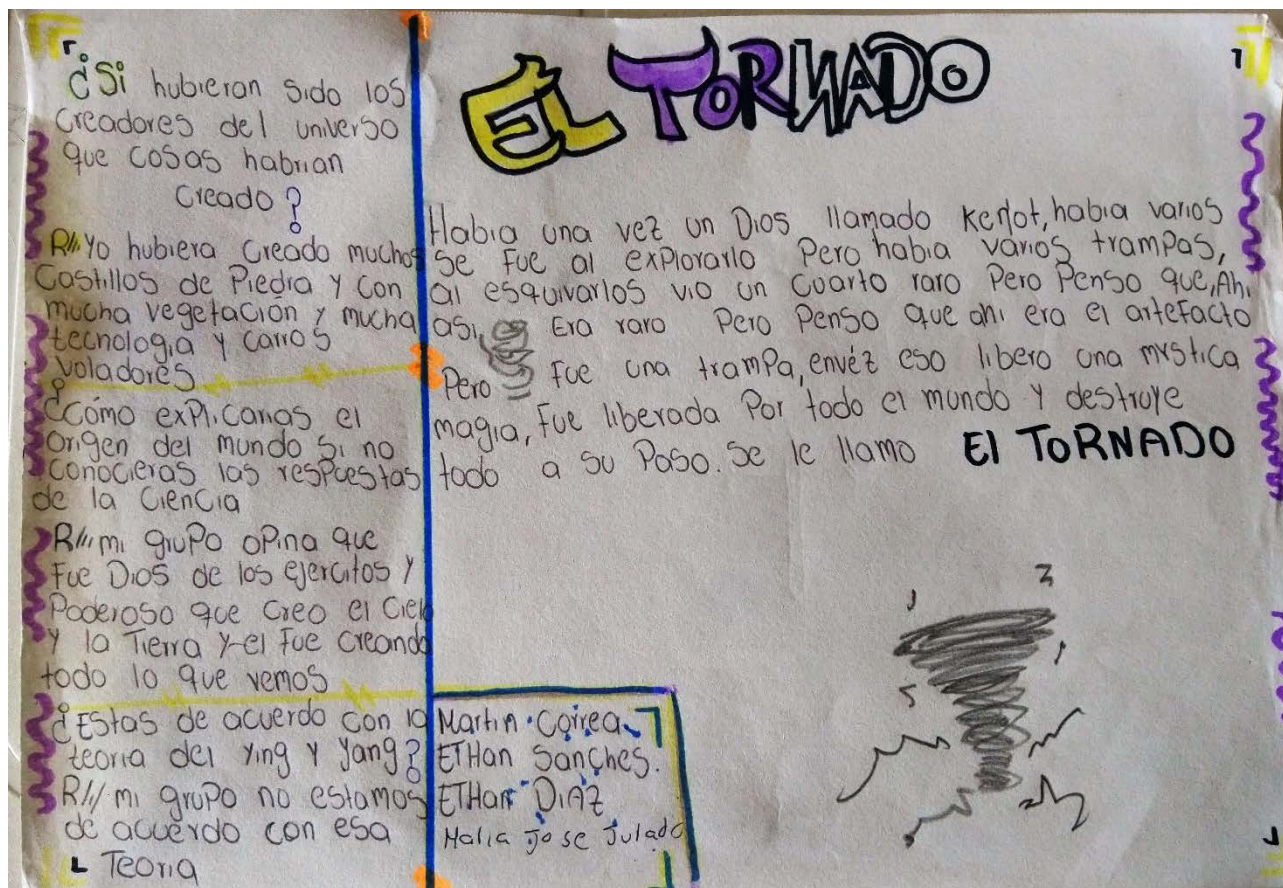 ¿Si hubieran sido los
creadores del universo
que cosas habrian
creado?
R// Yo hubiera creado muchos
castillos de Piedra y con
mucha vegetación y mucha
tecnologia y carros
voladores
¿Cómo explicarias el
origen del mundo si no
conocieras las respuestas
de la ciencia
R/// mi grupo opina que
Fue Dios de los ejercitos y
Poderoso que creo el cielo
y la Tierra y el Fue creando
todo lo que vemos
¿Estas de acuerdo con la
teoria del ying y yang?
R/// mi grupo no estamos
de acuerdo con esa
Teoria
EL TORNADO
Habia una vez un Dios llamado Kerlot, habia varios
se Fue al explorarlo Pero habia varios trampas,
al esquivarlos vio un cuarto raro Pero Penso que, Ahi,
asi, Era raro Pero Penso que ahi era el arteFacto
Pero Fue una trampa, envéz eso libero una mystica
magia, Fue liberada Por todo el mundo y destruye
todo a su Paso. Se le llamo El ToRNADO
Martin Correa
ETHan Sanches.
ETHan DiAZ
Jose